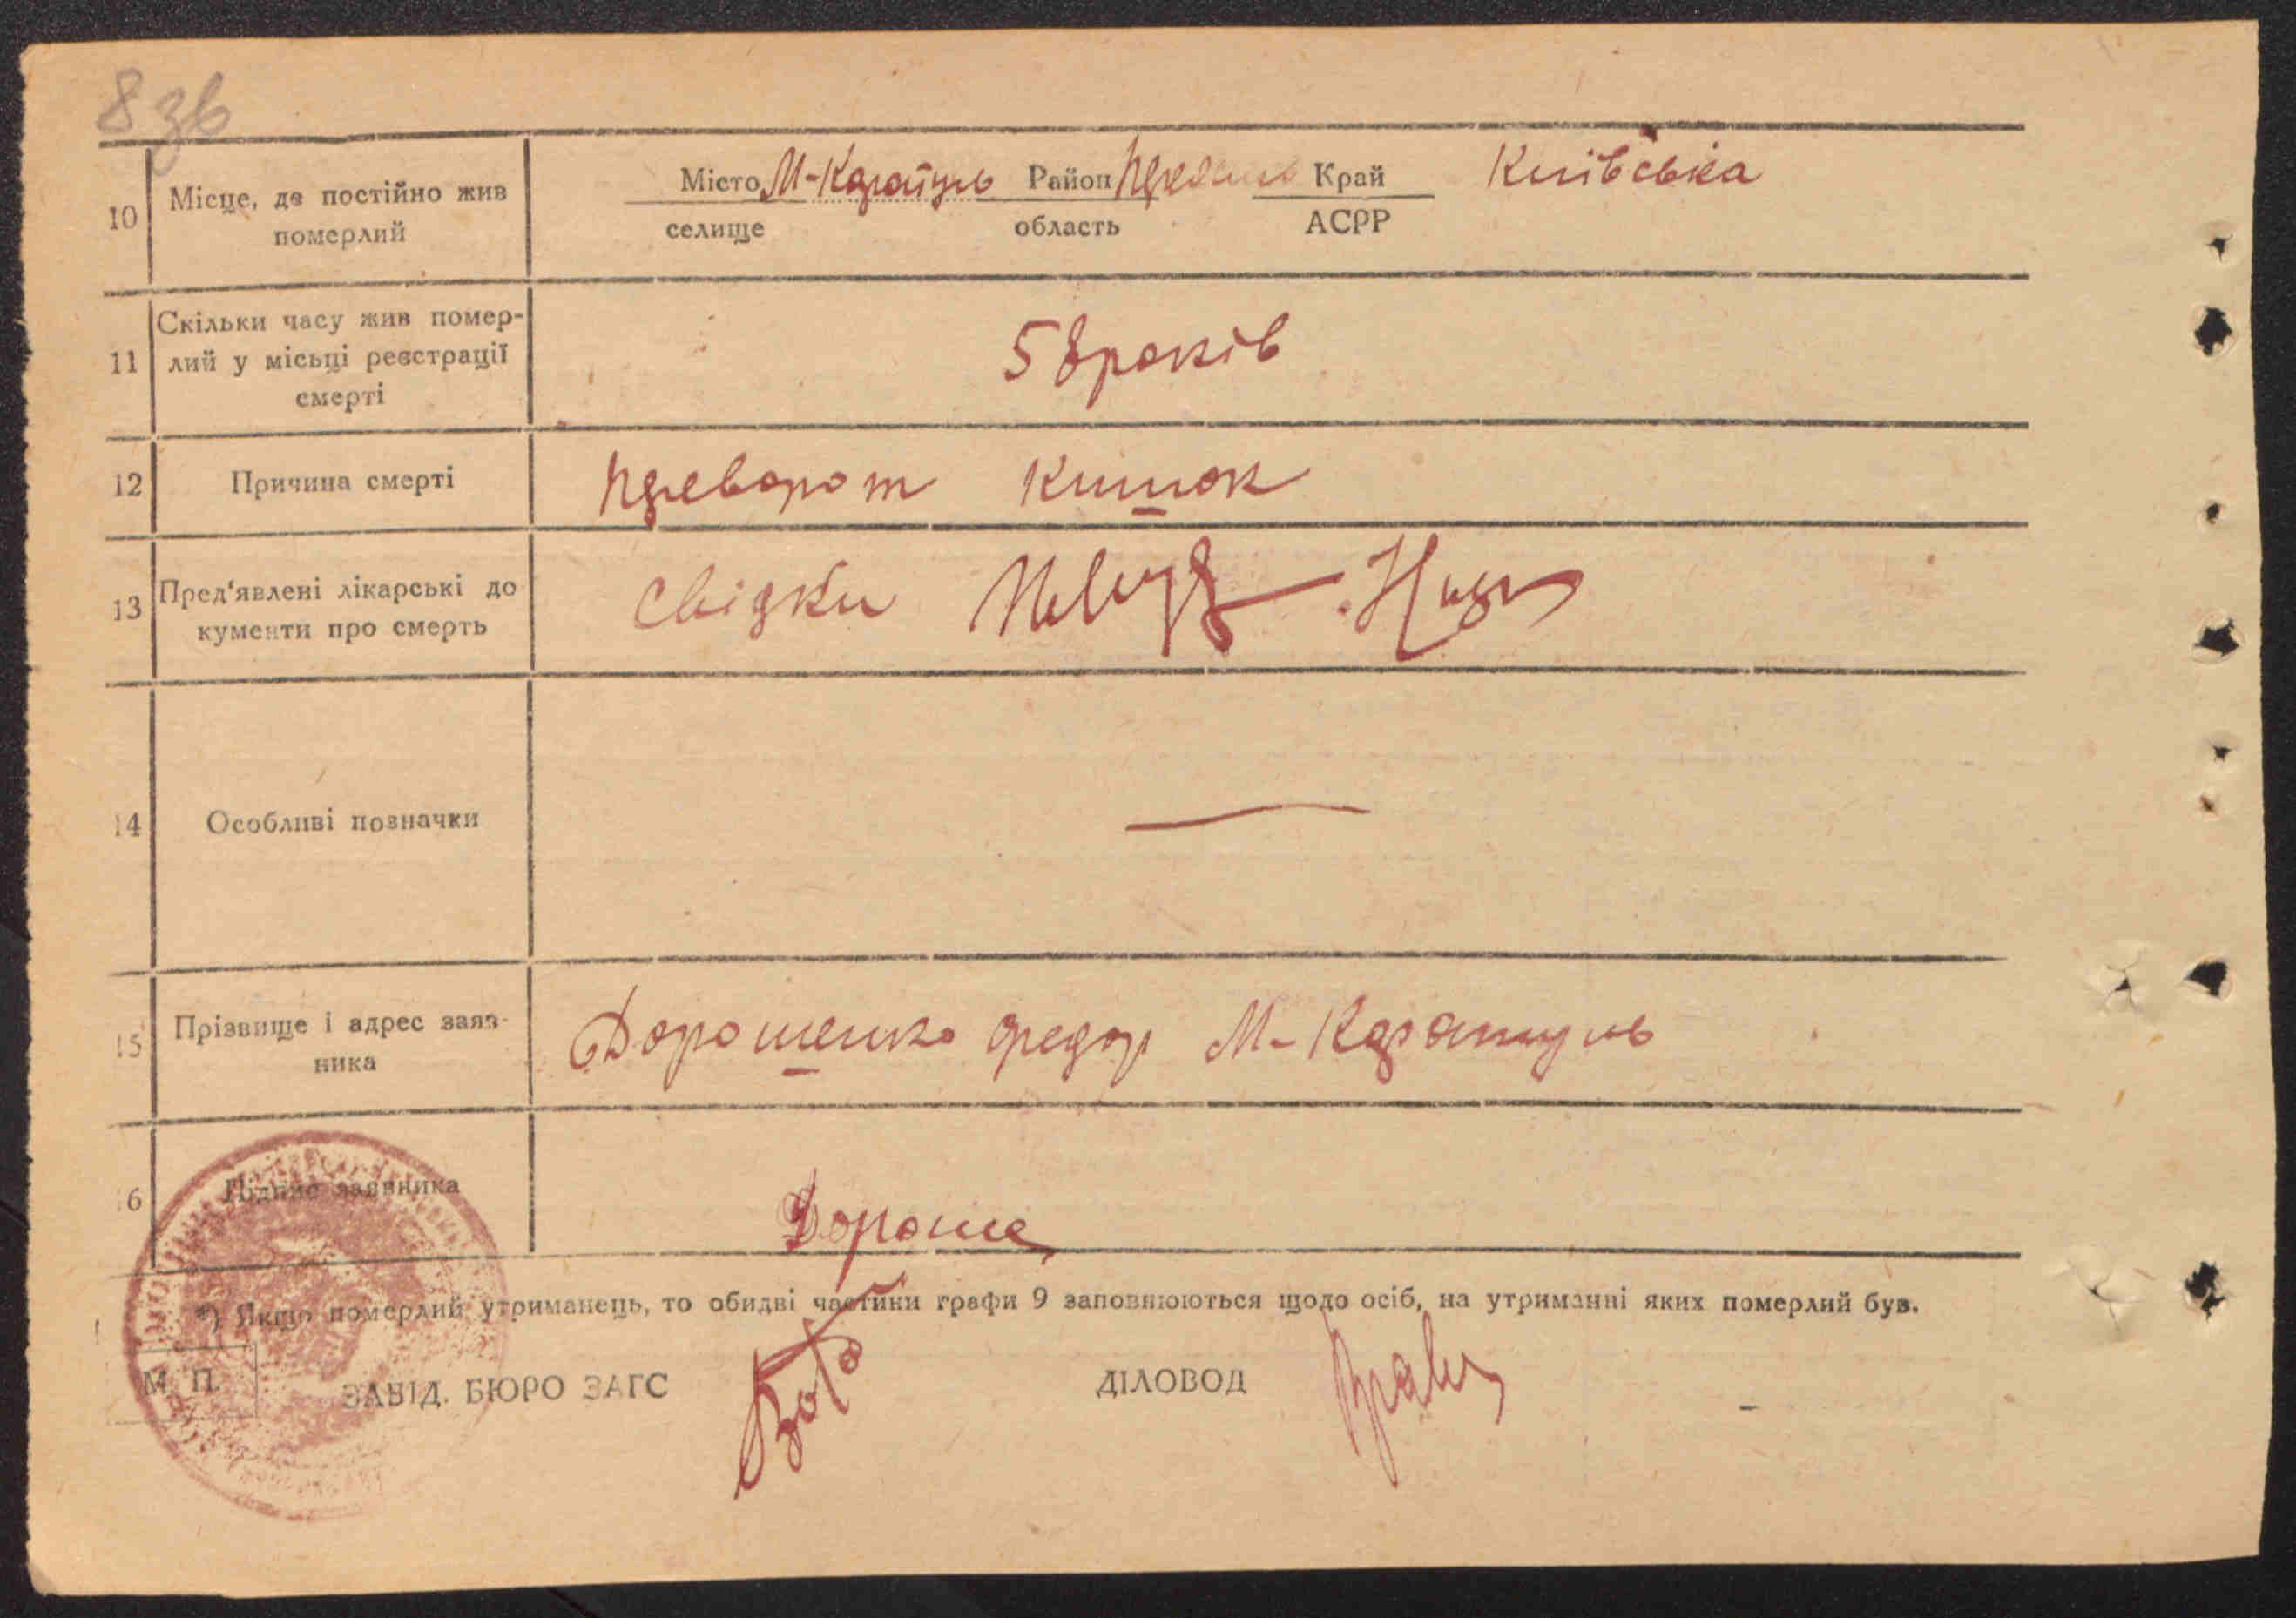 8 зв
10 Місце, де постійно жив померлий
Місто М-Каратуль Район Край Київська
селище область АСРР
11 Скільки часу жив помер-
лий у місьці реєстрації
смерті
58 років
12 Причина смерті
переворот кишок
13 Пред'явлені лікарські до
кументи про смерть
свідки
14 Особливі позначки
—
15 Прізвище і адрес заяв-
ника
Дорошенко Федор М-Каратуль
16 Підпис заявника
Дороше
*) Якщо померлий утриманець, то обидві частини графи 9 заповнюються щодо осіб, на утриманні яких померлий був.
М. П. ЗАВІД. БЮРО ЗАГС ДІЛОВОД